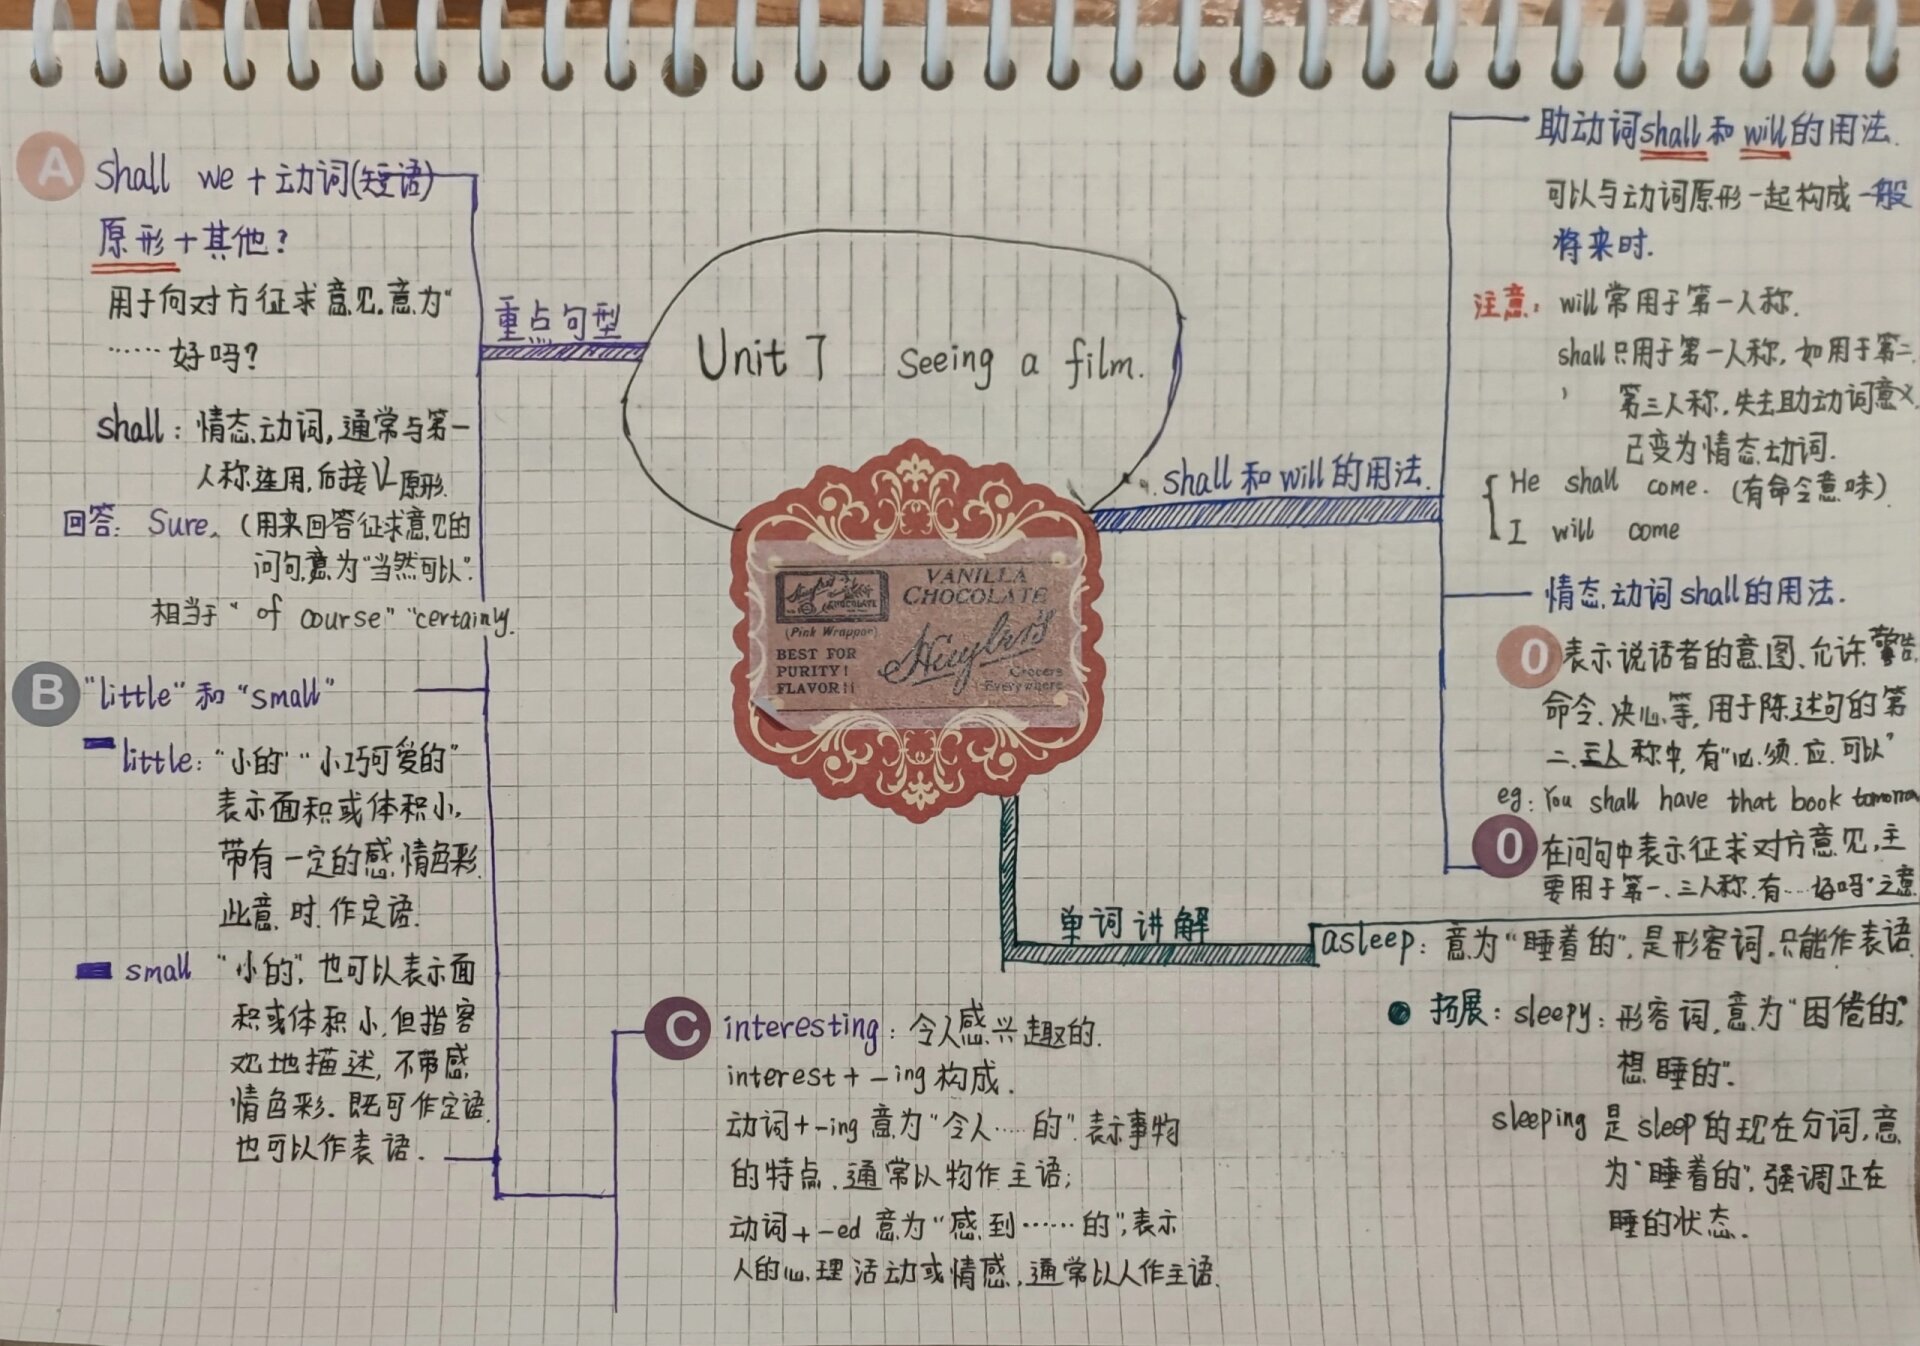 Unit 7 Seeing a film.
重点句型
A
shall we + 动词(短语)
原形 + 其他?
用于向对方征求意见.意为“
……好吗?
shall: 情态动词,通常与第一
人称连用,后接V原形.
回答: Sure. (用来回答征求意见的
问句,意为“当然可以”.
相当于 “of course” “certainly.
B
“little”和“small”
little: “小的”“小巧可爱的”
表示面积或体积小,
带有一定的感情色彩.
此意时.作定语.
small “小的”,也可以表示面
积或体积小,但指客
观地描述,不带感
情色彩.既可作定语.
也可以作表语.
C
interesting: 令人感兴趣的.
interest + -ing 构成.
动词+-ing 意为“令人……的”.表示事物
的特点.通常以物作主语;
动词+-ed 意为“感到……的”,表示
人的心理活动或情感,通常以人作主语.
VANILLA
CHOCOLATE
CHOCOLATE
(Pink Wrapper)
BEST FOR
PURITY!
FLAVOR!!
Huyler's
Grocers
Everywhere
shall和will的用法.
助动词shall和will的用法.
可以与动词原形一起构成一般
将来时.
注意: will常用于第一人称.
shall只用于第一人称,如用于第二.
,第三人称,失去助动词意义,
已变为情态动词.
He shall come. (有命令意味)
I will come
情态动词shall的用法.
O
表示说话者的意图、允许.警告,
命令.决心等,用于陈述句的第
二.三人称中,有“必.须.应.可以”
eg: You shall have that book
O
在问句中表示征求对方意见,主
要用于第一、三人称.有…好吗”之意
单词讲解
asleep: 意为“睡着的”,是形容词.只能作表语.
拓展: sleepy: 形容词,意为“困倦的,
想睡的”.
sleeping 是sleep的现在分词,意
为“睡着的”,强调正在
睡的状态.